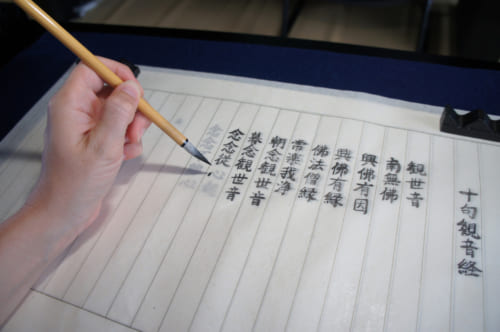 十句観音経
観世音
南無佛
與佛有因
與佛有縁
佛法僧縁
常楽我浄
朝念観世音
暮念観世音
念念従